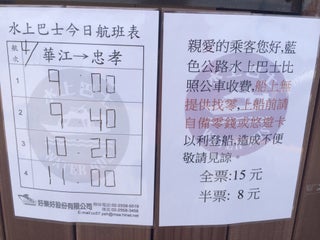 水上巴士今日航班表
航次
4/
華江→忠孝
1
9:00
2
9:40
3
10:20
4
11:00
好樂好股份有限公司
親愛的乘客您好,藍
色公路水上巴士比
照公車收費,船上無
提供找零,上船前請
自備零錢或悠遊卡
以利登船,造成不便
敬請見諒
全票:15元
半票: 8元